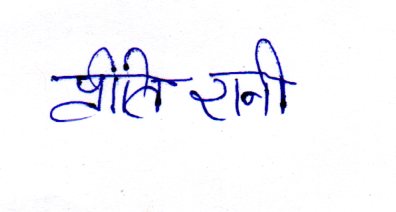 प्रीति रानी